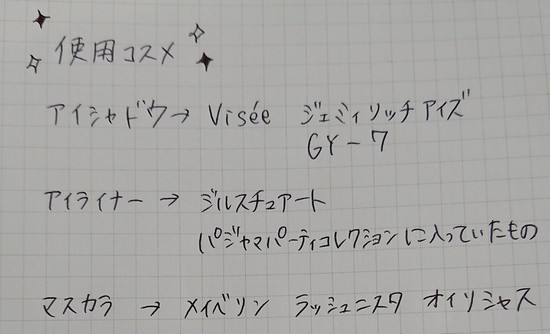 使用コスメ
アイシャドウ→ Visée ジェミィリッチアイズ
GY-7
アイライナー → ジルスチュアート
パジャマパーティコレクションに入っていたもの
マスカラ → メイベリン ラッシュニスタ オイリシャス